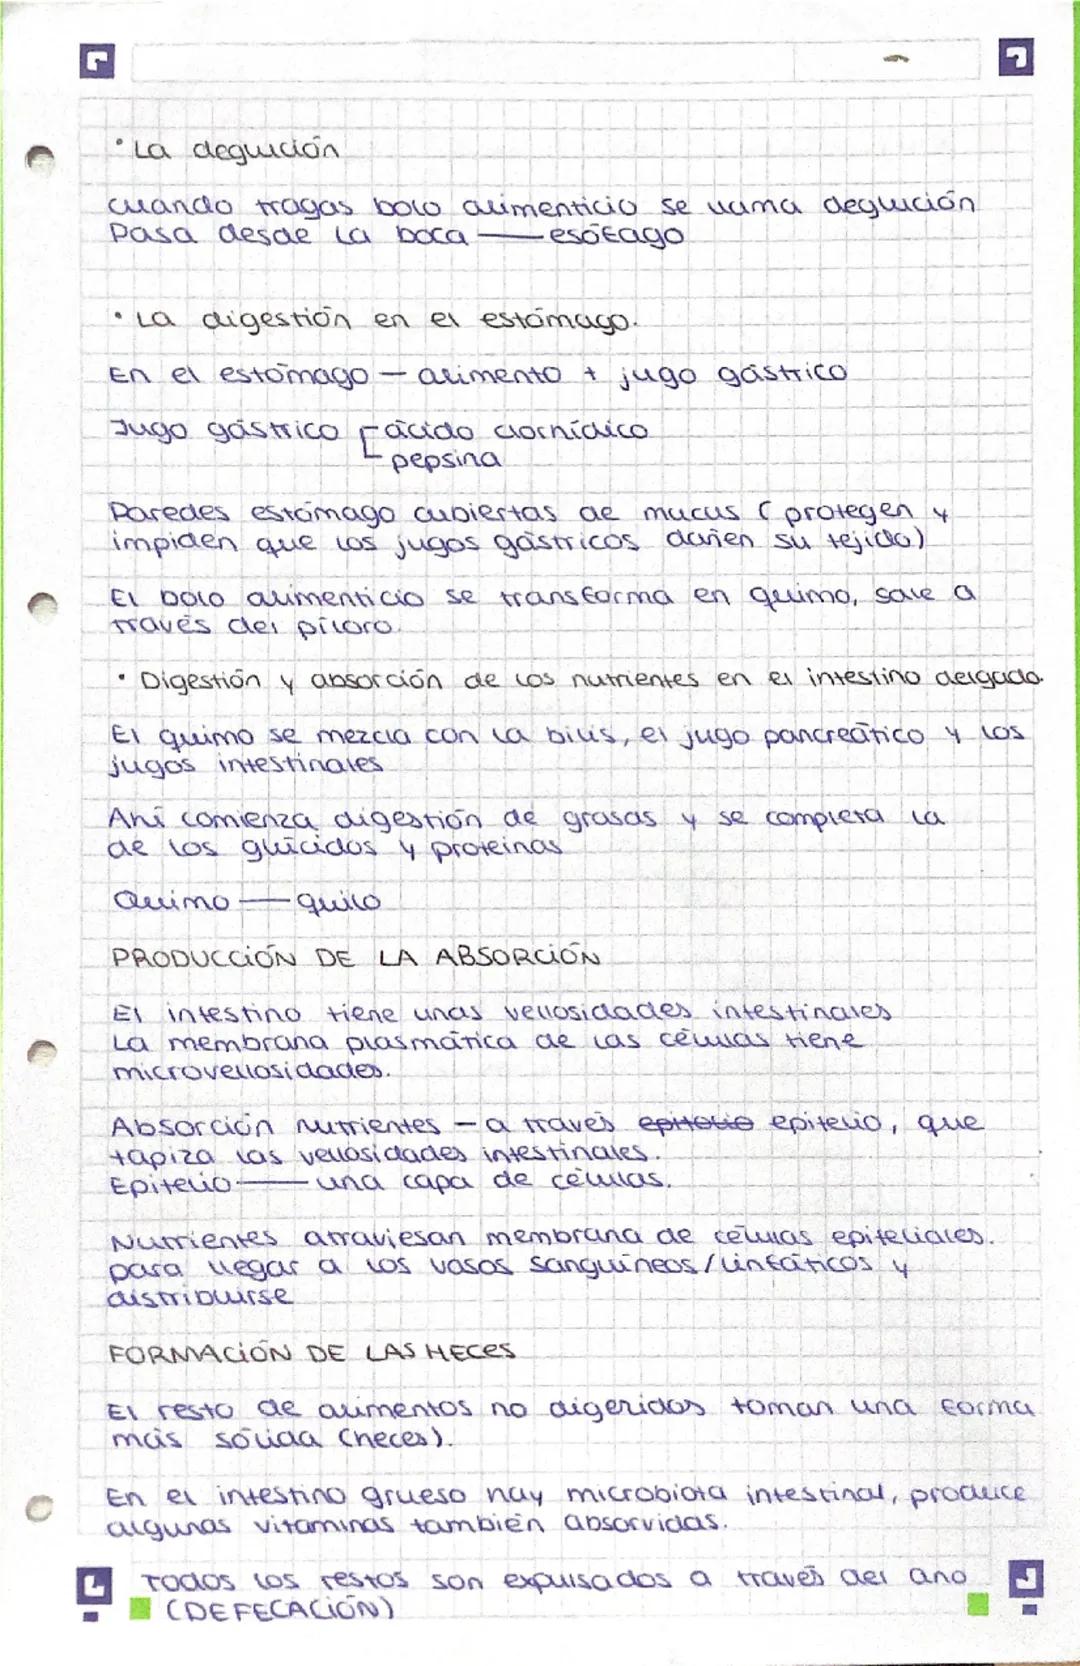 • La deglución
cuando tragas bolo alimenticio se llama deglución
Pasa desde la boca — esófago
• La digestión en el estómago.
En el estómago — alimento + jugo gástrico
Jugo gástrico ácido clorhídico
pepsina
Paredes estómago cubiertas de mucus (protegen y
impiden que los jugos gástricos dañen su tejido)
El bolo alimenticio se transforma en quimo, sale a
través del píloro.
• Digestión y absorción de los nutrientes en el intestino delgado.
El quimo se mezcla con la bilis, el jugo pancreático y los
jugos intestinales
Ahí comienza digestión de grasas y se completa la
de los glúcidos y proteinas
Quimo — quilo
PRODUCCIÓN DE LA ABSORCIÓN
El intestino tiene unas vellosidades intestinales
La membrana plasmática de las células tiene
microvellosidades.
Absorción nutrientes — a través epitelio epitelio, que
tapiza las vellosidades intestinales.
Epitelio — una capa de células.
Nutrientes atraviesan membrana de células epiteliales.
para llegar a los vasos sanguíneos/linfáticos y
distribuirse
FORMACIÓN DE LAS HECES
El resto de alimentos no digeridos toman una forma
más sólida (heces).
En el intestino grueso hay microbiota intestinal, produce
algunas vitaminas también absorvidas.
Todos los restos son expulsados a través del ano
(DEFECACIÓN)